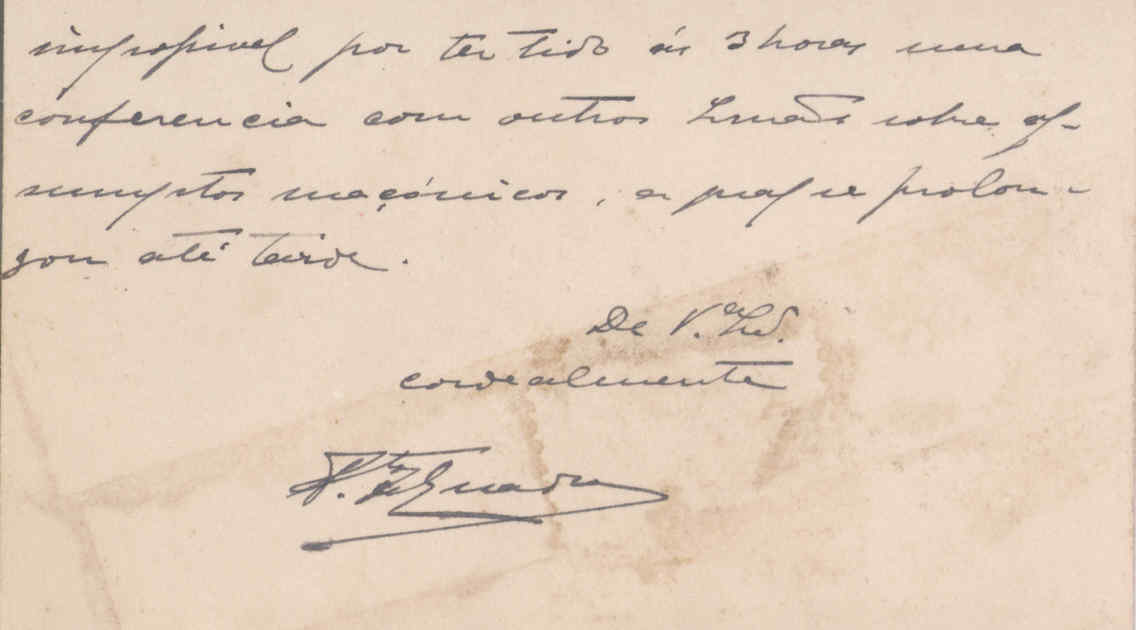 impossivel por ter tido ás 3 horas uma
conferencia com outros Irmãos sobre as-
sumptos maçónicos, a qual se prolon-
gou até tarde.
De V.
cordealmente